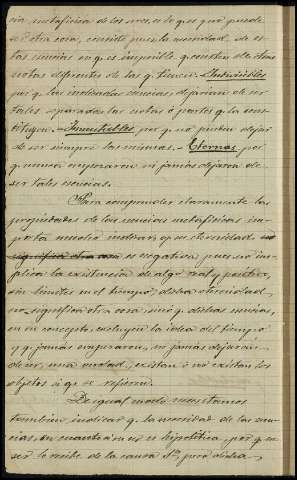 cia metafísica de los seres, es lo que que puede
ser otra cosa, consiste pues la necesidad de es-
tas esencias en q. es imposible q. consten de otras
notas diferentes de las q. tienen. Indivisibles
por q. las indicadas esencias dejarían de ser
tales separadas las notas ó partes q. la cons-
tituyen. Inmutables por q. no pueden dejar
de ser siempre las mismas. Eternas por
q. nunca empezaron ni jamás dejaran de
ser tales esencias.
Para comprender claramente las
propiedades de las esencias metafísicas im-
porta mucho indicar, q. su eternidad no
significa otra cosa es negativa pues no im-
plica la existencia de algo real y positivo,
sin límites en el tiempo; dicha eternidad
no significa otra cosa, sino q. dichas esencias,
en su concepto, excluyen la idea del tiempo
y q. jamás empezaron, ni jamás dejarán
de ser una verdad, existan ó no existan los
objetos á q. se refieren.
De igual modo necesitamos
también, indicar q. la necesidad de las esen-
cias, en cuanto á su ser es hipotética, por q. su
ser lo recibe de la causa 1ª, pero dicha